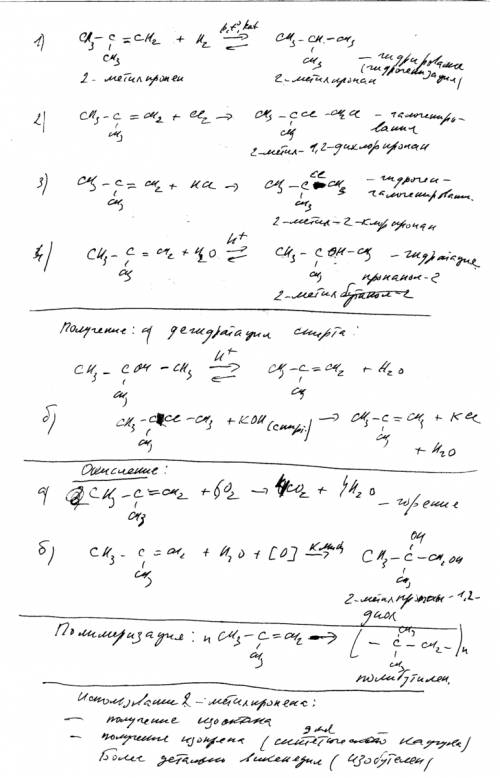 p, t°, kat
1) CH₃-C=CH₂ + H₂ ⇌ CH₃-CH-CH₃
CH₃ CH₃ - гидрирование
(гидрогенизация)
2-метилпропен 2-метилпропан
2) CH₃-C=CH₂ + Cl₂ → CH₃-CCl-CH₂Cl - галогениро-
CH₃ CH₃ вание
2-метил-1,2-дихлорпропан
Cl
3) CH₃-C=CH₂ + HCl → CH₃-C-CH₃ - гидроген-
CH₃ CH₃ галогенировани.
2-метил-2-хлорпропан
4) CH₃-C=CH₂ + H₂O ⇌ CH₃-COH-CH₃ - гидратация
H⁺
CH₃ CH₃ пропанол-2
2-метил бутанол-2
Получение: а) дегидратация спирта:
H⁺
CH₃-COH-CH₃ ⇌ CH₃-C=CH₂ + H₂O
CH₃ CH₃
б) CH₃-CCl-CH₃ + KOH (спирт.) → CH₃-C=CH₂ + KCl
CH₃ CH₃ + H₂O
Окисление:
а) CH₃-C=CH₂ + 6O₂ → 4CO₂ + 4H₂O - горение
CH₃
OH
б) CH₃-C=CH₂ + H₂O + [O] KMnO₄→ CH₃-C-CH₂OH
CH₃ CH₃
2-метилпропан-1,2-
диол
Полимеризация: n CH₃-C=CH₂ → (-C-CH₂-)n
CH₃ CH₃
CH₃
полибутилен.
Использование 2-метилпропена:
- получение изооктана
для
- получение изопрена (синтетического каучука)
Более детально википедия (изобутелен)